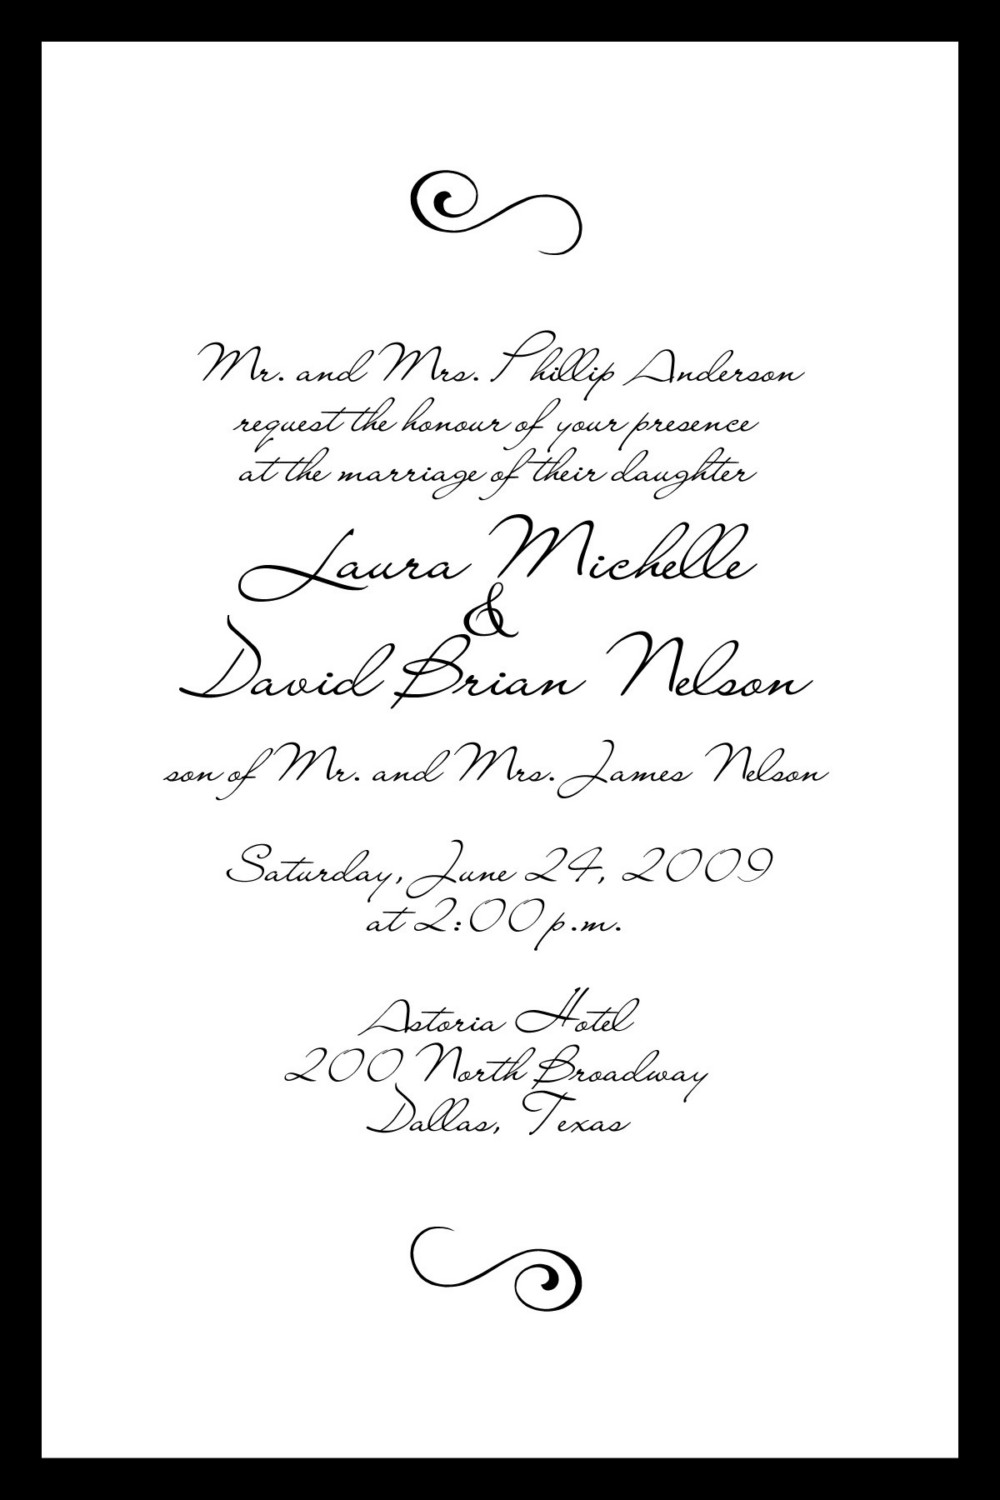 Mr. and Mrs. Phillip Anderson
request the honour of your presence
at the marriage of their daughter
Laura Michelle
&
David Brian Nelson
son of Mr. and Mrs. James Nelson
Saturday, June 24, 2009
at 2:00 p.m.
Astoria Hotel
200 North Broadway
Dallas, Texas